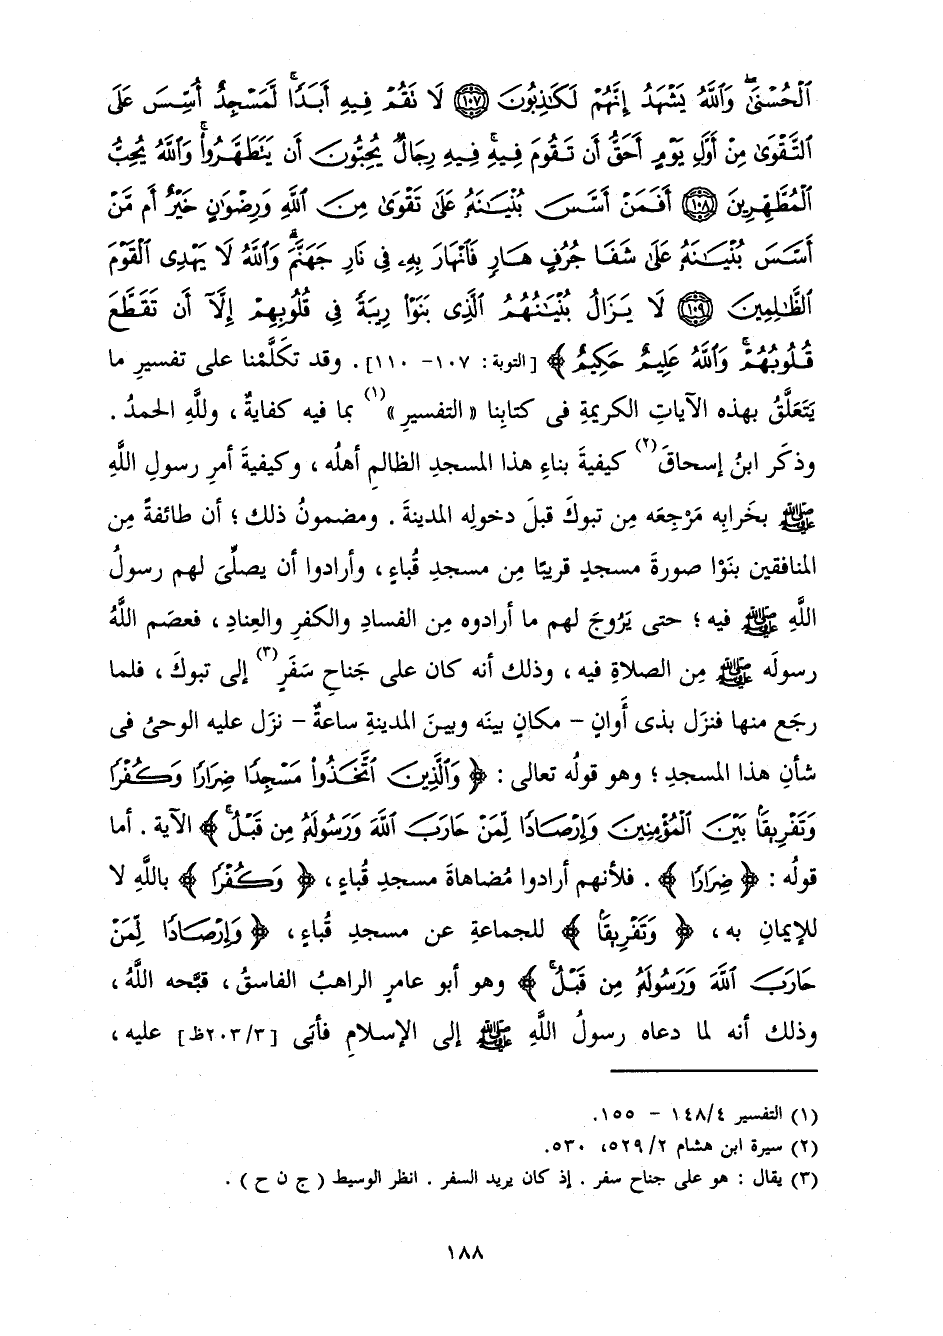 ٱلْحُسْنَىٰ ۖ وَٱللَّهُ يَشْهَدُ إِنَّهُمْ لَكَـٰذِبُونَ ١٠٧ لَا تَقُمْ فِيهِ أَبَدًا ۚ لَّمَسْجِدٌ أُسِّسَ عَلَى
ٱلتَّقْوَىٰ مِنْ أَوَّلِ يَوْمٍ أَحَقُّ أَن تَقُومَ فِيهِ ۚ فِيهِ رِجَالٌ يُحِبُّونَ أَن يَتَطَهَّرُوا۟ ۚ وَٱللَّهُ يُحِبُّ
ٱلْمُطَّهِّرِينَ ١٠٨ أَفَمَنْ أَسَّسَ بُنْيَـٰنَهُۥ عَلَىٰ تَقْوَىٰ مِنَ ٱللَّهِ وَرِضْوَٰنٍ خَيْرٌ أَم مَّنْ
أَسَّسَ بُنْيَـٰنَهُۥ عَلَىٰ شَفَا جُرُفٍ هَارٍ فَٱنْهَارَ بِهِۦ فِى نَارِ جَهَنَّمَ ۗ وَٱللَّهُ لَا يَهْدِى ٱلْقَوْمَ
ٱلظَّـٰلِمِينَ ١٠٩ لَا يَزَالُ بُنْيَـٰنُهُمُ ٱلَّذِى بَنَوْا۟ رِيبَةً فِى قُلُوبِهِمْ إِلَّآ أَن تَقَطَّعَ
قُلُوبُهُمْ ۗ وَٱللَّهُ عَلِيمٌ حَكِيمٌ ﴾ [التوبة: ١٠٧- ١١٠]. وقد تكَلَّمْنا على تفسيرِ ما
يَتَعَلَّقُ بهذه الآياتِ الكريمةِ فى كتابِنا «التفسيرِ»(١) بما فيه كفايةٌ، وللَّهِ الحمدُ.
وذكَر ابنُ إسحاقَ(٢) كيفيةَ بناءِ هذا المسجدِ الظالمِ أهلُه، وكيفيةَ أمرِ رسولِ اللَّهِ
ﷺ بخَرابِه مَرْجِعَه مِن تبوكَ قبلَ دخولِه المدينةَ. ومضمونُ ذلك؛ أن طائفةً مِن
المنافقين بنَوْا صورةَ مسجدٍ قريبًا مِن مسجدِ قُباءٍ، وأرادوا أن يصلِّىَ لهم رسولُ
اللَّهِ ﷺ فيه؛ حتى يَرُوجَ لهم ما أرادوه مِن الفسادِ والكفرِ والعِنادِ، فعصَم اللَّهُ
رسولَه ﷺ مِن الصلاةِ فيه، وذلك أنه كان على جَناحِ سَفَرٍ(٣) إلى تبوكَ، فلما
رجَع منها فنزَل بذى أَوانٍ - مكانٍ بينَه وبينَ المدينةِ ساعةٌ - نزَل عليه الوحىُ فى
شأنِ هذا المسجدِ؛ وهو قولُه تعالى: ﴿ وَٱلَّذِينَ ٱتَّخَذُوا۟ مَسْجِدًا ضِرَارًا وَكُفْرًا
وَتَفْرِيقًۢا بَيْنَ ٱلْمُؤْمِنِينَ وَإِرْصَادًا لِّمَنْ حَارَبَ ٱللَّهَ وَرَسُولَهُۥ مِن قَبْلُ ۚ ﴾ الآية. أما
قولُه: ﴿ ضِرَارًا ﴾. فلأنهم أرادوا مُضاهاةَ مسجدِ قُباءٍ، ﴿ وَكُفْرًا ﴾ باللَّهِ لا
للإيمانِ به، ﴿ وَتَفْرِيقًۢا ﴾ للجماعةِ عن مسجدِ قُباءٍ، ﴿ وَإِرْصَادًا لِّمَنْ
حَارَبَ ٱللَّهَ وَرَسُولَهُۥ مِن قَبْلُ ۚ ﴾ وهو أبو عامرٍ الراهبُ الفاسقُ، قبَّحه اللَّهُ،
وذلك أنه لما دعاه رسولُ اللَّهِ ﷺ إلى الإسلامِ فأَبَى [٢٠٣/٣ظ] عليه،
(١) التفسير ١٤٨/٤ - ١٥٥.
(٢) سيرة ابن هشام ٥٢٩/٢، ٥٣٠.
(٣) يقال: هو على جناح سفر. إذ كان يريد السفر. انظر الوسيط (ج ن ح).
١٨٨